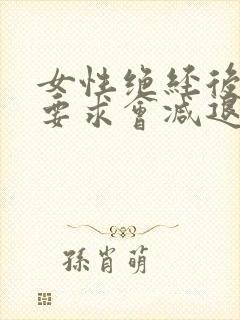 女性绝经後
要求會减退
孫肖萌